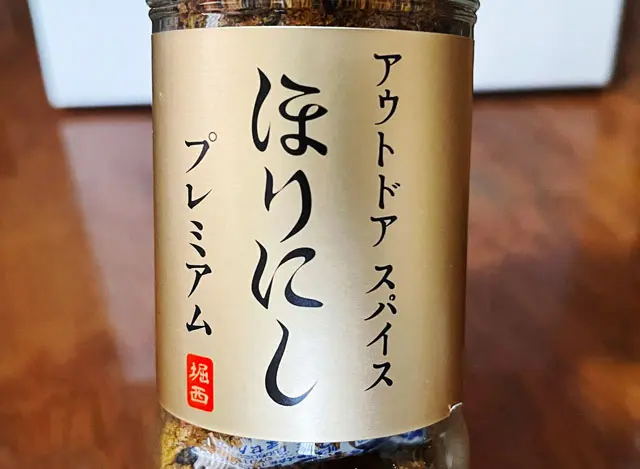 アウトドア スパイス
ほりにし
プレミアム
堀西